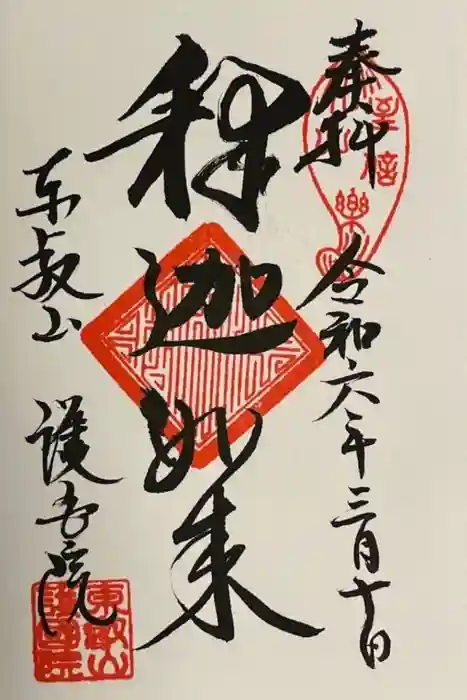 奉拝
令和六年三月十日
釈迦如来
東叡山
護国院
東叡山
護國院